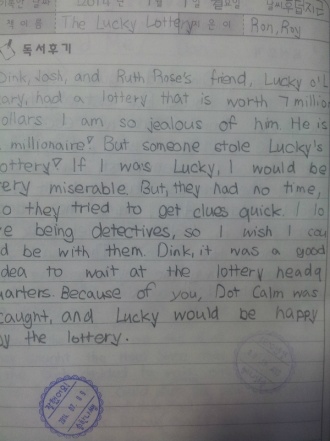 2014 년 월 1 일 요일
The Lucky Lottery Ron, Roy
독서후기
Dink, Josh, and Ruth Rose's friend, Lucky o'L
eary, had a lottery that is worth 7 millio
dollars I am so jealous of him. He is
millionaire! But someone stole Lucky's
lottery! If I was Lucky, I would be
very miserable. But, they had no time,
so they tried to get clues quick. I lo
ve being detectives, so I wish I cou
ld be with them. Dink, it was a good
idea to wait at the lottery headq
uarters. Because of you, Dot Calm was
caught, and Lucky would be happy
by the lottery.